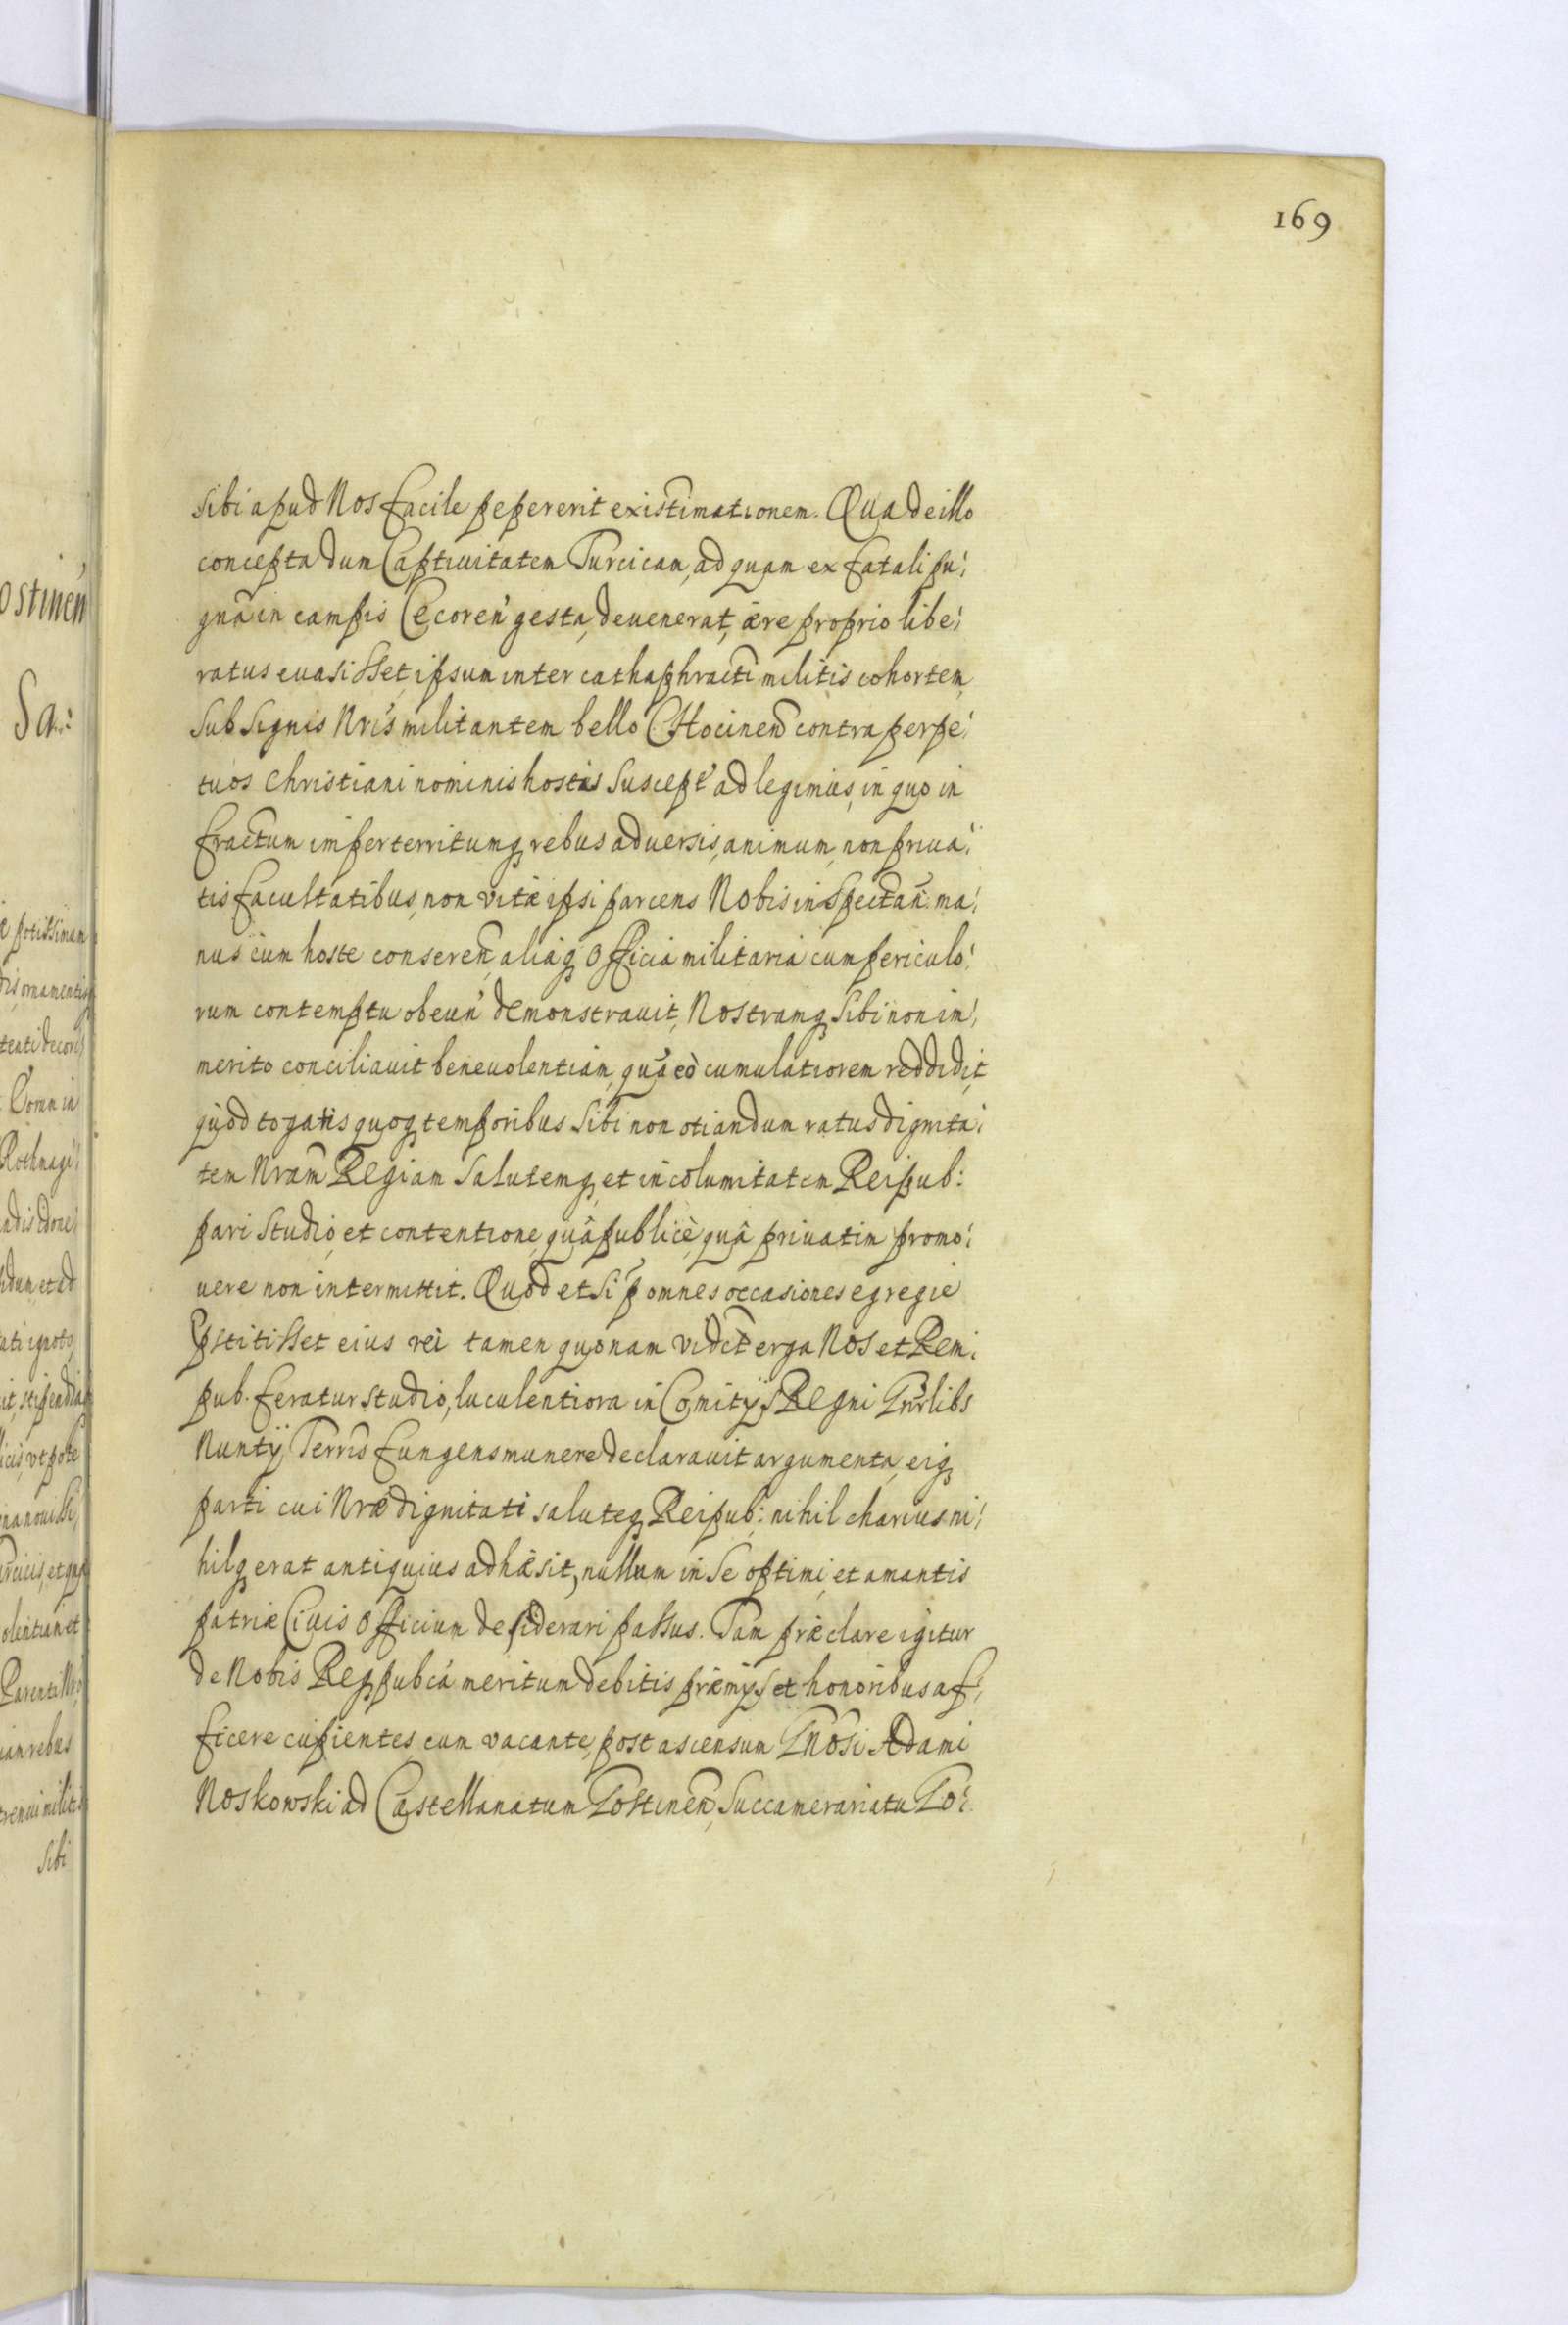 169
sibi apud Nos facile pepererit existimationem. Qua de illo
concepta dum Captiuitatem Turcicam, ad quam ex fatali pu:
gna in campis Cecoren̄ gesta, deuenerat, ære proprio libe:
ratus euasisset, ipsum inter cathaphracti militis cohortem
sub signis Nrīs militantem bello CHocinen̄ contra perpe:
tuos Christiani nominis hostes suscept̄ adlegimus, in quo in
fractum imperterritumq rebus aduersis, animum, non priua:
tis facultatibus, non vitæ ipsi parcens Nobis inspectan̄: ma:
nus cum hoste conseren̄, aliaq Officia militaria cum periculo:
rum contemptu obeun̄ demonstrauit, Nostramq sibi non im:
merito conciliauit beneuolentiam, quā eò cumulatiorem reddidit
quòd togatis quoq temporibus sibi non otiandum ratus dignita:
tem Nram̄ Regiam salutemq, et incolumitatem Reipub:
pari studio, et contentione, quâ publicè, quâ priuatim promo:
uere non intermittit. Quod etsi p omnes occasiones egregie
pstitisset eius rei tamen quonam vidct̄ erga Nos et Rem:
pub. feratur studio, luculentiora in Comitijs Regni Gnrlibs
Nuntij Terrīs fungens munere declarauit argumenta, eiq
parti cui Nræ dignitati saluteq Reipub: nihil charius ni:
hilq erat antiquius adhæsit, nullum in se optimi, et amantis
patriæ Ciuis Officium desiderari passus. Tam præclare igitur
de Nobis Reqpubcā meritum debitis præmijs et honoribus af:
ficere cupientes, cum vacante, post ascensum Gnōsi Adami
Noskowski ad Castellanatum Gostinen̄, Succamerariatu Go:
ostinen̄
Sa:
potissimam
ornamentis
Coram in
et ad
ignoto,
stipendia
vtpote
et
Parenti Nrō
rebus
militis
sibi